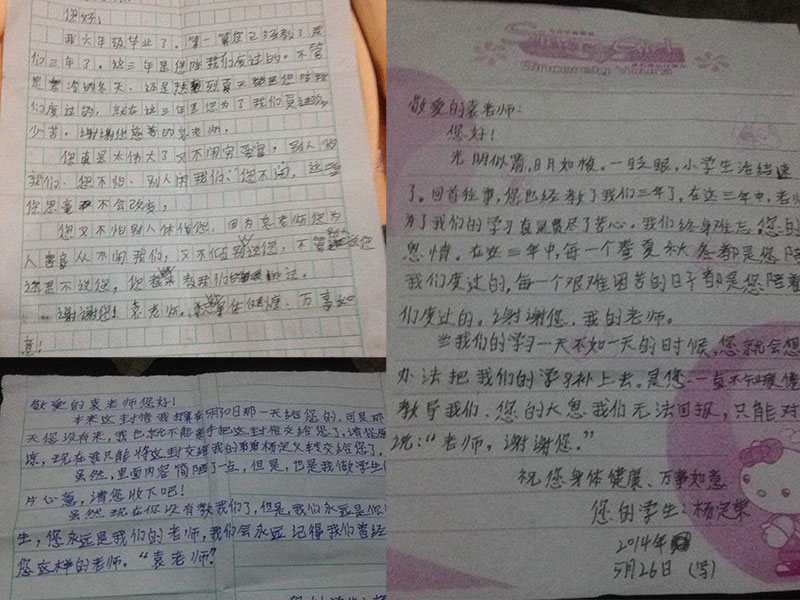 您好！
我六年级毕业了。算一算您已经教了我
们三年了。这三年是您陪我们度过的。不管
是寒冷的冬天、还是热到夏天都是您陪我
们度过的，就在这三年里您为了我们
少苦。谢谢您慈善的袁老师。
您真是太伟大了又不闲穷爱富，别人
我们、您不怕、别人闲我们、您不闲，这
您思毫不会改变，
您又不怕别人体伯您，因为袁老师您为
人善良从不闲我们，又不怕别说您，不管
谢谢您！袁老师。身体健康、万事如
意！
敬爱的袁老师您好！
本来这封信我打算明10日那一天给您的，可是那
天您没有来，我也就不能亲手把这封信交给您了，请您原
谅，现在我只能将这封交给我的弟弟杨定义转交给您了。
虽然，里面内容简陋了一点，但是，也是我做学生的
片心意，请您收下吧！
虽然现在你没有教我们了，但是，我们永远是你
生，您永远是我们的老师，我们会永远记得我们曾经
您这样的老师。“袁老师”
敬爱的袁老师：
您好！
光明似箭，日月如梭。一眨眼，小学生活结速
了。回首往事，您已经教了我们三年了。在这三年中，老师
为了我们的学习真是费尽了苦心。我们终身难忘，您的
恩情。在这三年中，每一个春夏秋冬都是您陪
我们度过的，每一个艰难困苦的日子都是您陪着
们度过的。谢谢您、我的老师。
当我们的学习一天不如一天的时候，您就会想
办法把我们的学习补上去。是您一直不知疲倦
教导我们、您的大恩我们无法回报，只能对
说：“老师，谢谢您。”
祝您身体健康、万事如意
您的学生：杨定
2014年
5月26日（写）